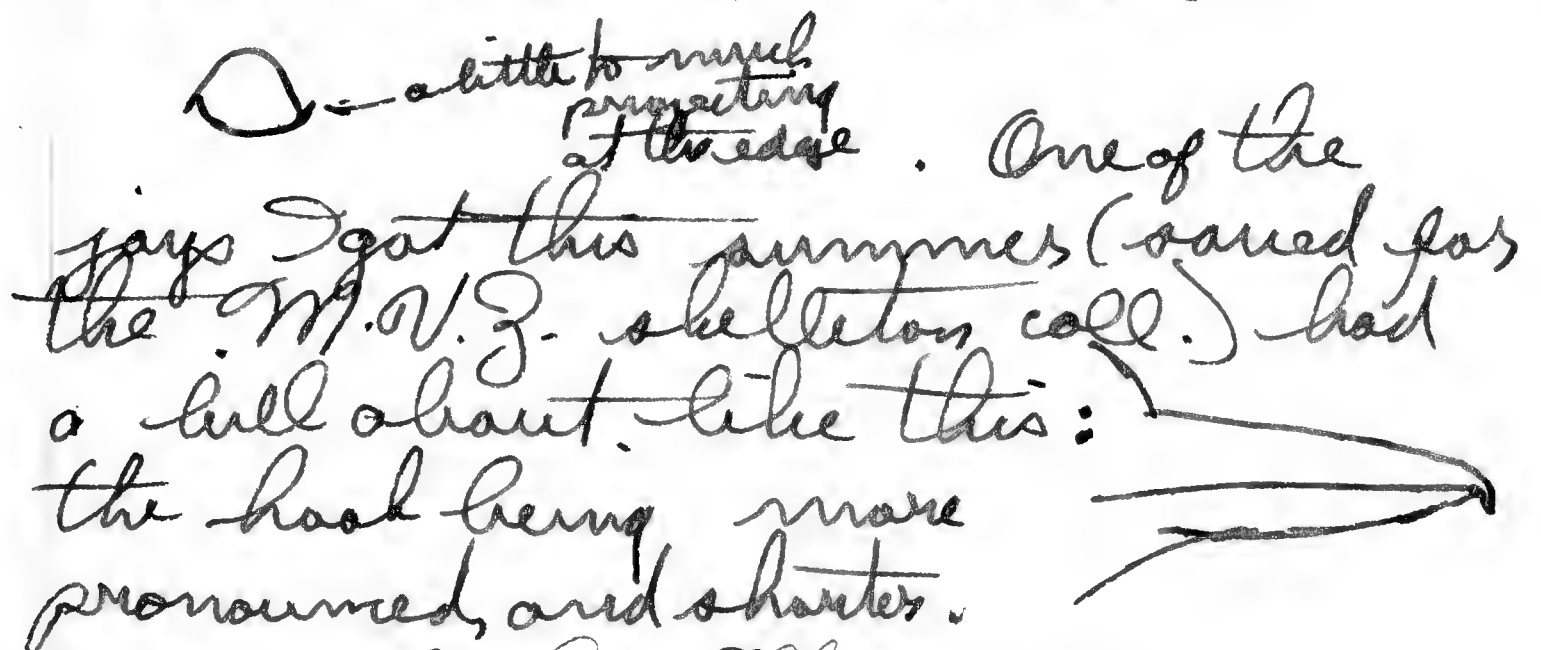 a little to much
projecting
at the edge . One of the
jays I got this summer (saved for
the M.V.Z. skelleton coll.) had
a bill about like this:
the hook being more
pronounced, and shorter.